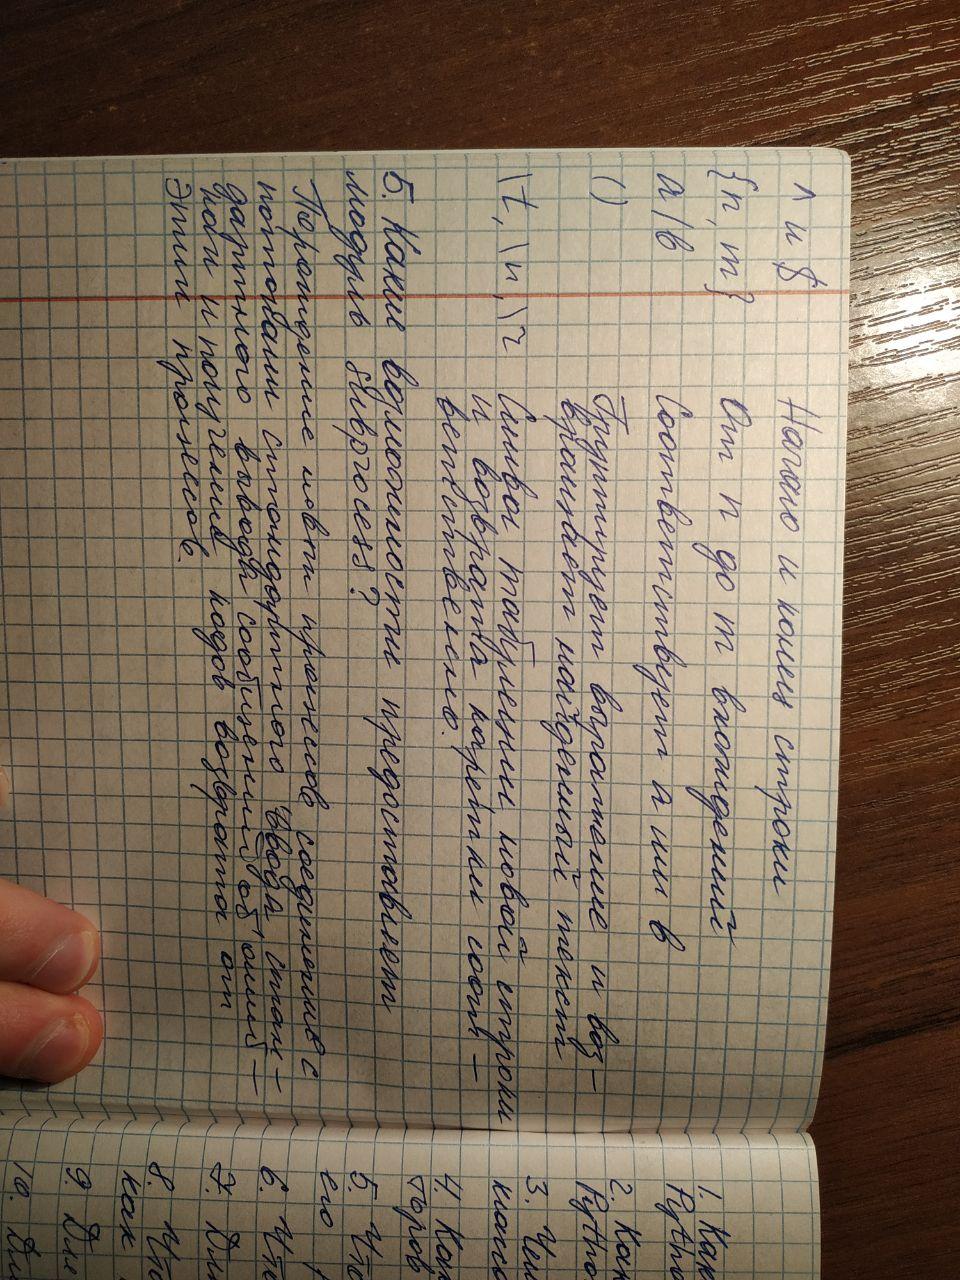 ^ и $ Начало и конец строки
{n, m} От n до m вхождений
a|b Соответствует a или b
() Группирует выражение и воз-
вращает найденный текст
\t, \n, \r Символ табуляции новой строки
и возврата каретки соот-
ветственно.
5. Какие возможности предоставляет
модуль subprocess?
Порождение новых процессов соединение с
потоками стандартного ввода стан-
дартного вывода сообщений об ошиб-
ках и получение кодов возврата от
этих процессов.
1. Как
Pytho
2. Как
Pytho
3. Чем
класс
4. Как
торов
5. Что
его
6. Что
7. Для
8. Что
как
9. Для
10. Для